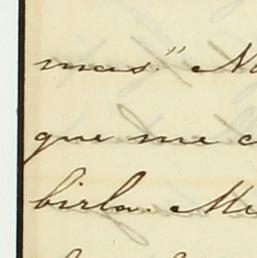 mas." N
que me c
birla. Me